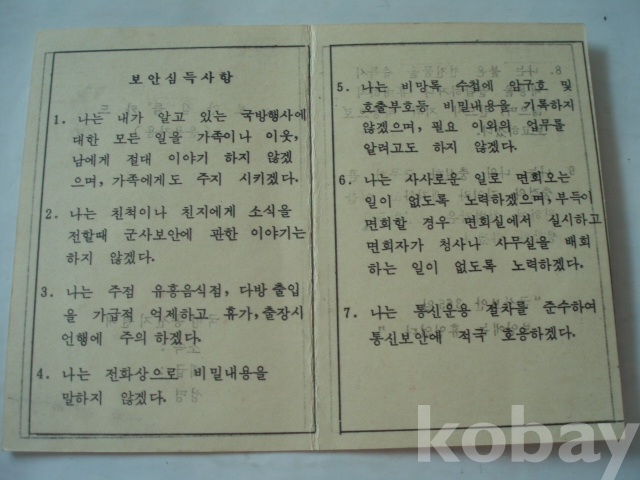 보안심득사항
1. 나는 내가 알고 있는 국방행사에
대한 모든 일을 가족이나 이웃,
남에게 절대 이야기 하지 않겠
으며, 가족에게도 주지 시키겠다.
2. 나는 친척이나 친지에게 소식을
전할때 군사보안에 관한 이야기는
하지 않겠다.
3. 나는 주점 유흥음식점, 다방 출입
을 가급적 억제하고 휴가, 출장시
언행에 주의 하겠다.
4. 나는 전화상으로 비밀내용을
말하지 않겠다.
5. 나는 비망록 수첩에 암구호 및
호출부호등 비밀내용을 기록하지
않겠으며, 필요 이외의 업무를
알려고도 하지 않겠다.
6. 나는 사사로운 일로 면회오는
일이 없도록 노력하겠으며, 부득이
면회할 경우 면회실에서 실시하고
면회자가 청사나 사무실을 배회
하는 일이 없도록 노력하겠다.
7. 나는 통신운용 절차를 준수하여
통신보안에 적극 호응하겠다.
kobay